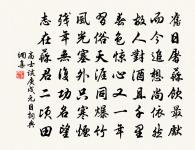 舊日屠蘇飲最
而今追想尚依然
故人對酒且千里
春色驚心又一年
習俗天涯同爆竹
風光塞外只寒煙
殘年無復功名望
志在蘇君二頃田
高士談庚戌元日詞典
網集